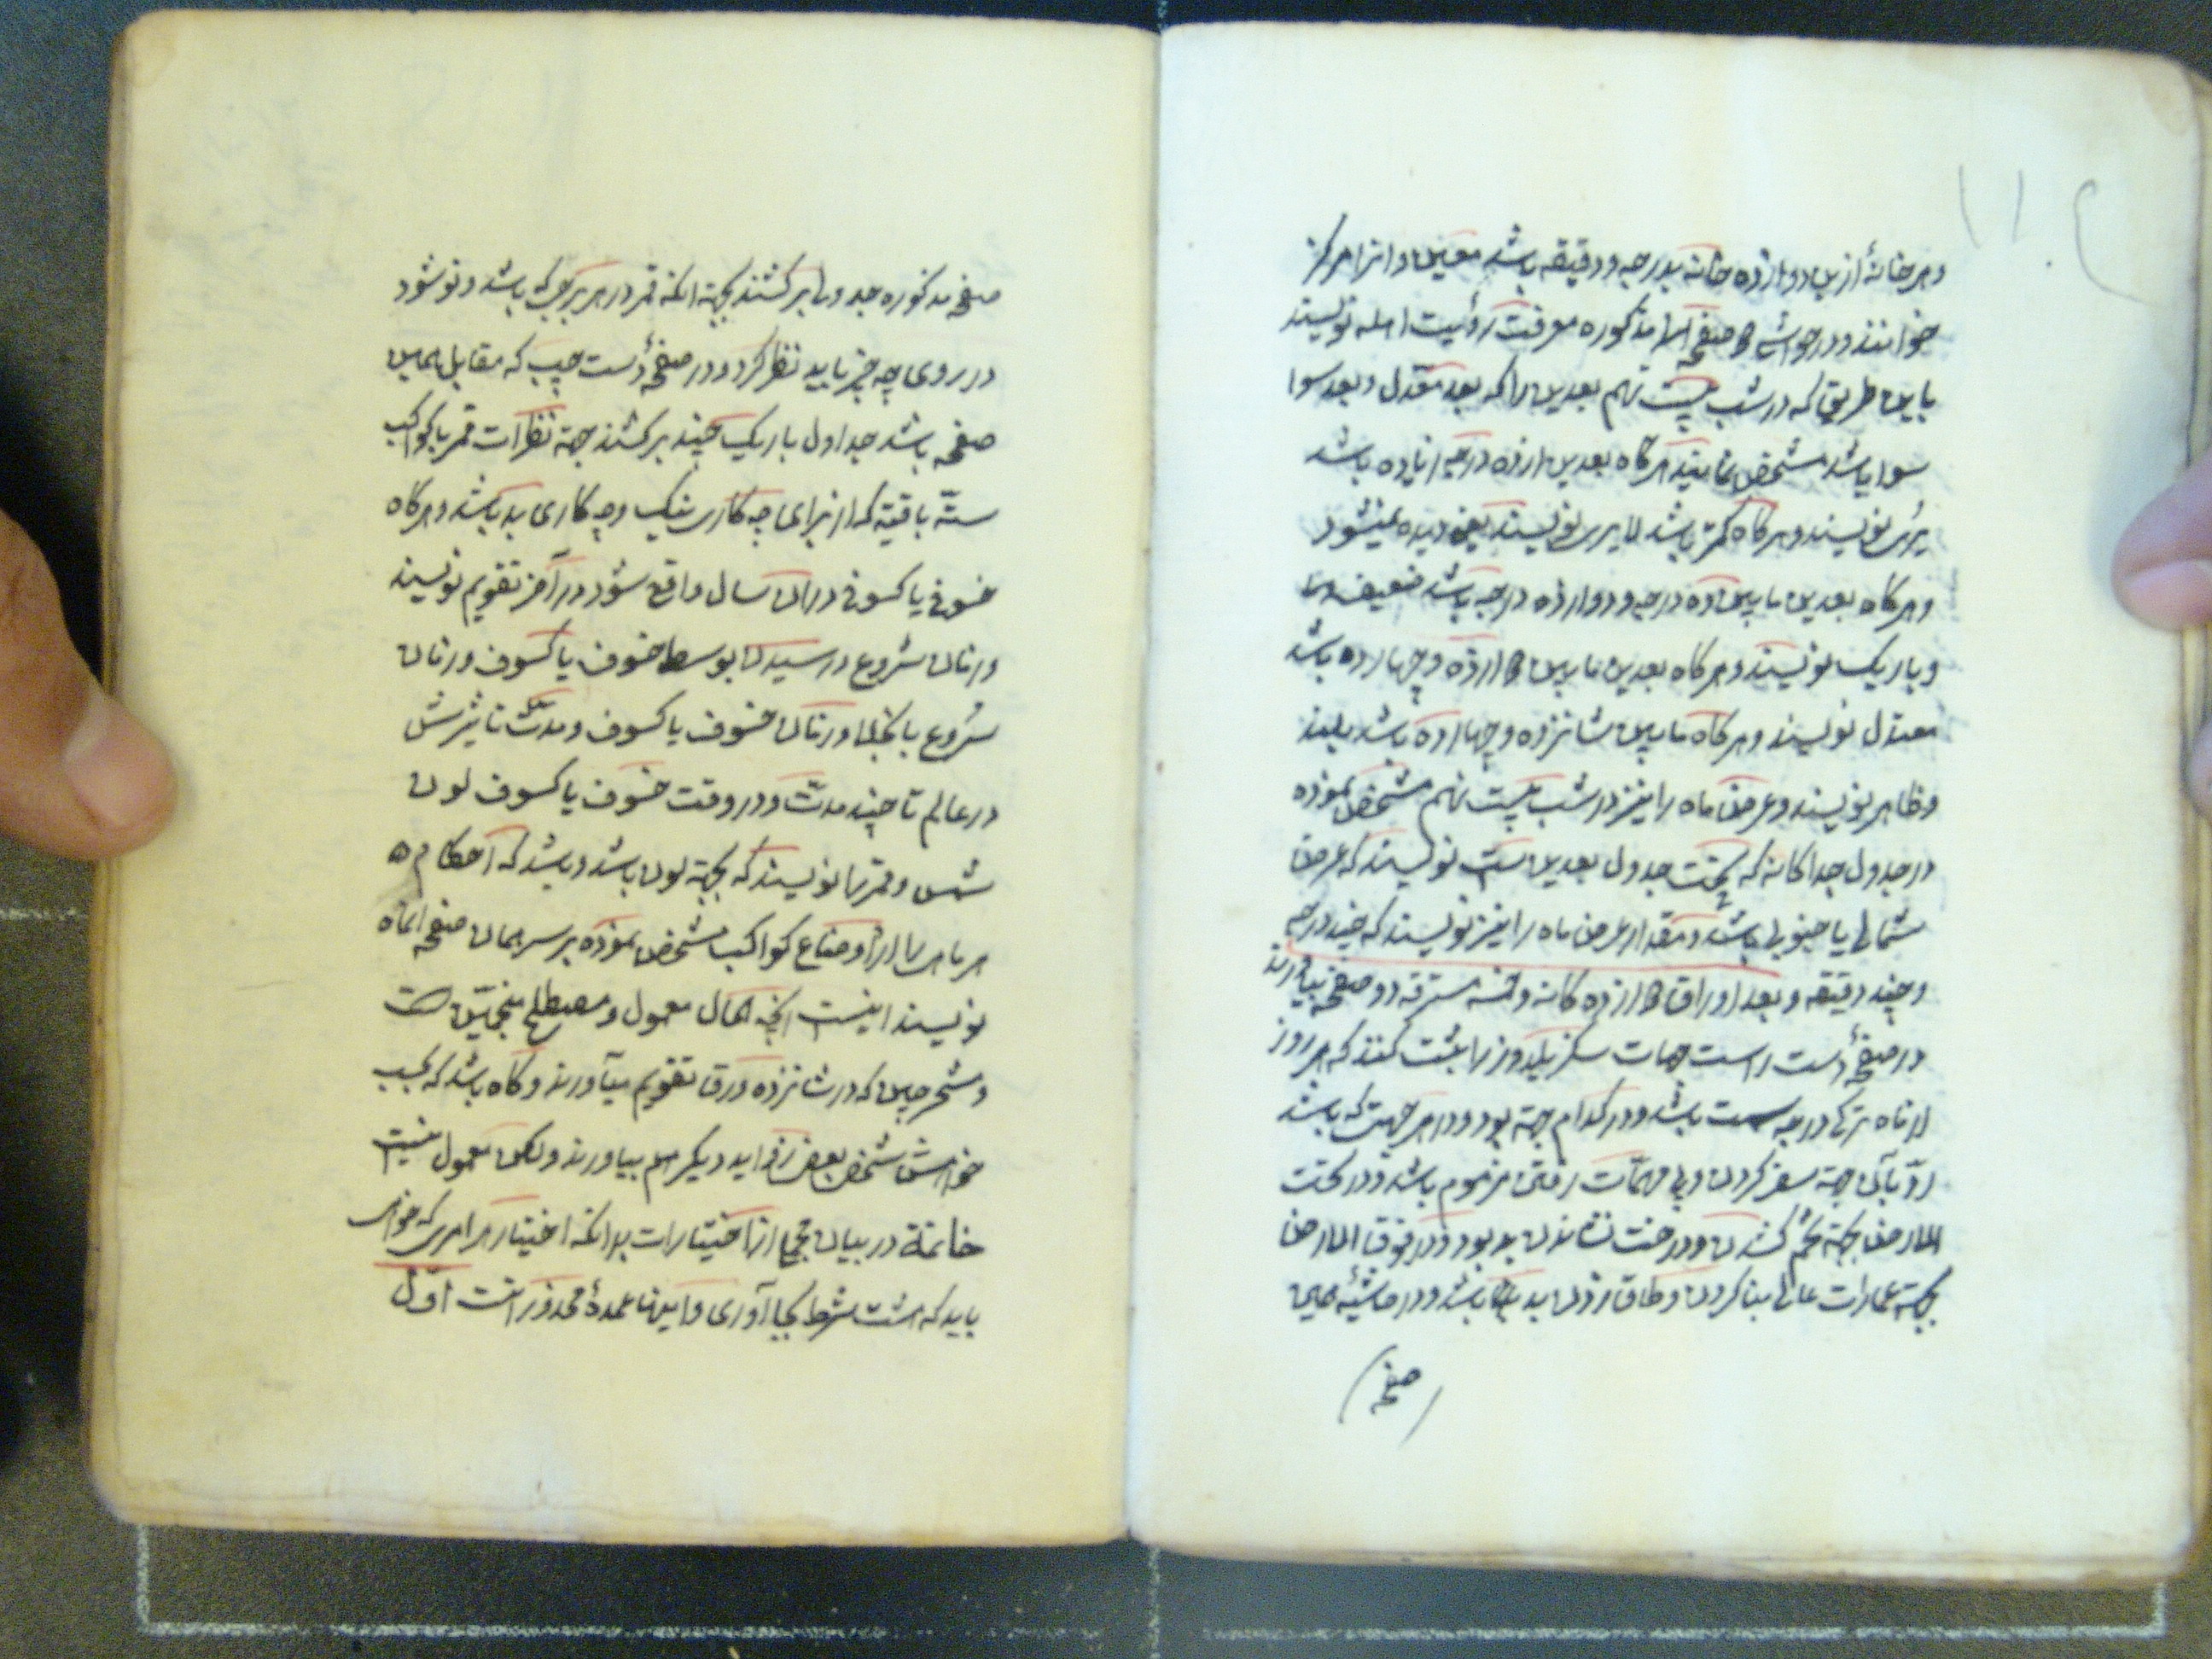 وهر خانهٔ ازین دوازده خانه بدرجه ودقیقه باشد معین وانرا مرکز
خوانند ودر حواشی صفحه مذکوره معرفت رؤیت اهله نویسند
باین طریق که در شب بیست نهم بعدین را که بعد معدل وبعد سوا
سوا باشد مشخص نمایند هرگاه بعدین از ده درجه زیاده باشد
یری نویسند وهرگاه کمتر باشد لایری نویسند یعنی دیده نمیشود
وهرگاه بعدین مابین ده درجه ودوازده درجه باشد ضعیف
وباریک نویسند وهرگاه بعدین مابین دوازده وچهارده باشد
معتدل نویسند وهرگاه مابین شانزده وچهارده باشد بلند
وظاهر نویسند وعرض ماه را نیز در شب بیست نهم مشخص نموده
در جدول جداگانه که تحت جدول بعدین است نویسند که عرض
شمالی یا جنوبی باشد ومقدار عرض ماه را نیز نویسند که چند درجه
وچند دقیقه وبعد اوراق دوازده گانه وخمسه مسترقه دو صفحه بیاورند
در صفحهٔ دست راست جهات سکزیلدوز را ثبت کنند که هر روز
از ماه ترکی در چه سمت باشد ودر کدام جهة بود ودر هر جهت که باشد
رو بآن جهة سفر کردن وپی مهمات رفتن مذموم باشد ودر تحت
الارض بجهة تخم کشتن ودرخت نشاندن بد بود ودر فوق الارض
بجهة عمارات عالی بنا کردن وطاق زدن بد باشد ودر حاشیهٔ همین
صفحه
صفحه مذکوره جدولی برکشند بجهة انکه قمر در هر برجی که باشد ونو شود
در روی چه چیز باید نظر کرد ودر صفحهٔ دست چپ که مقابل همین
صفحه باشد جداول باریک چند برکشند جهة نظرات قمر با کواکب
ستّه باقیه که از برای چه کاری نیک وچه کاری بد باشد وهرگاه
خسوفی یا کسوفی در ان سال واقع شود در آخر تقویم نویسند
وزمان شروع ورسیدن بوسط خسوف یا کسوف وزمان
شروع بانجلا وزمان خسوف یا کسوف ومدّت تاثیرش
در عالم تا چند مدّت ودر وقت خسوف یا کسوف لون
شمس وقمر را نویسند که بچه لون باشد وباشد که احکام
هر ماهی را از اوضاع کواکب مشخص نموده بر سر همان صفحه انماه
نویسند اینست انچه الحال معمول ومصطلح منجمین است
ومستخرجین که در شانزده ورق تقویم میآورند وگاه باشد که بحسب
خواهش شخص بعض زواید دیگر هم بیاورند ولکن معمول نیست
خاتمة در بیان مجملی از اختیارات بدانکه اختیار هر امری که خواهی
باید که هشت شرط بجا آوری واینها عمدهٔ محذورات است اوّل